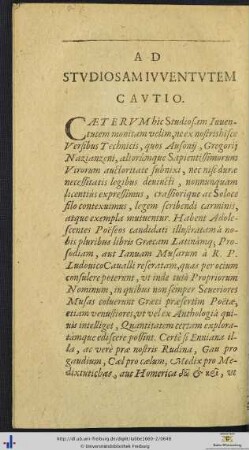 AD
STVDIOSAM IVVENTVTEM
CAVTIO.
CÆTERVM hic Studiosam Iuuen-
tutem monitam velim, ne ex nostris hisce
Versibus Technicis, quos Ausonij, Gregorij
Nazianzeni, aliorúmque Sapientissimorum
Virorum auctoritate subnixi, nec nisi duræ
necessitatis legibus deuincti, nonnunquam
licentiùs expressimus, crassiorique ac Soluto
filo conteximus, legem scribendi carminis,
atque exempla mutuentur. Habent Adole-
scentes Poëseos candidati illustratam à no-
bis pluribus libris Græcam Latinámq; Pro-
sodiam, aut Ianuam Musarum à R. P.
Ludonico Cauallo reseratam, quas per otium
consulere poterunt, vt inde tutò Propriorum
Nominum, in quibus non semper Seueriores
Musas coluerunt Græci præsertim Poëtæ,
etiam venustiores, vt vel ex Anthologia qui-
uis intelliget, Quantitatem certam explora-
támque ediscere possint. Certè si Enniana il-
la, ac verè præ nostris Rudina, Gau pro
gaudium, Cæl pro cælum, Medix pro Me-
dixtutichæs, aut Homerica δῶ & κρῖ, vt
http://dl.ub.uni-freiburg.de/diglit/labbe1663-2/0048
© Universitätsbibliothek Freiburg